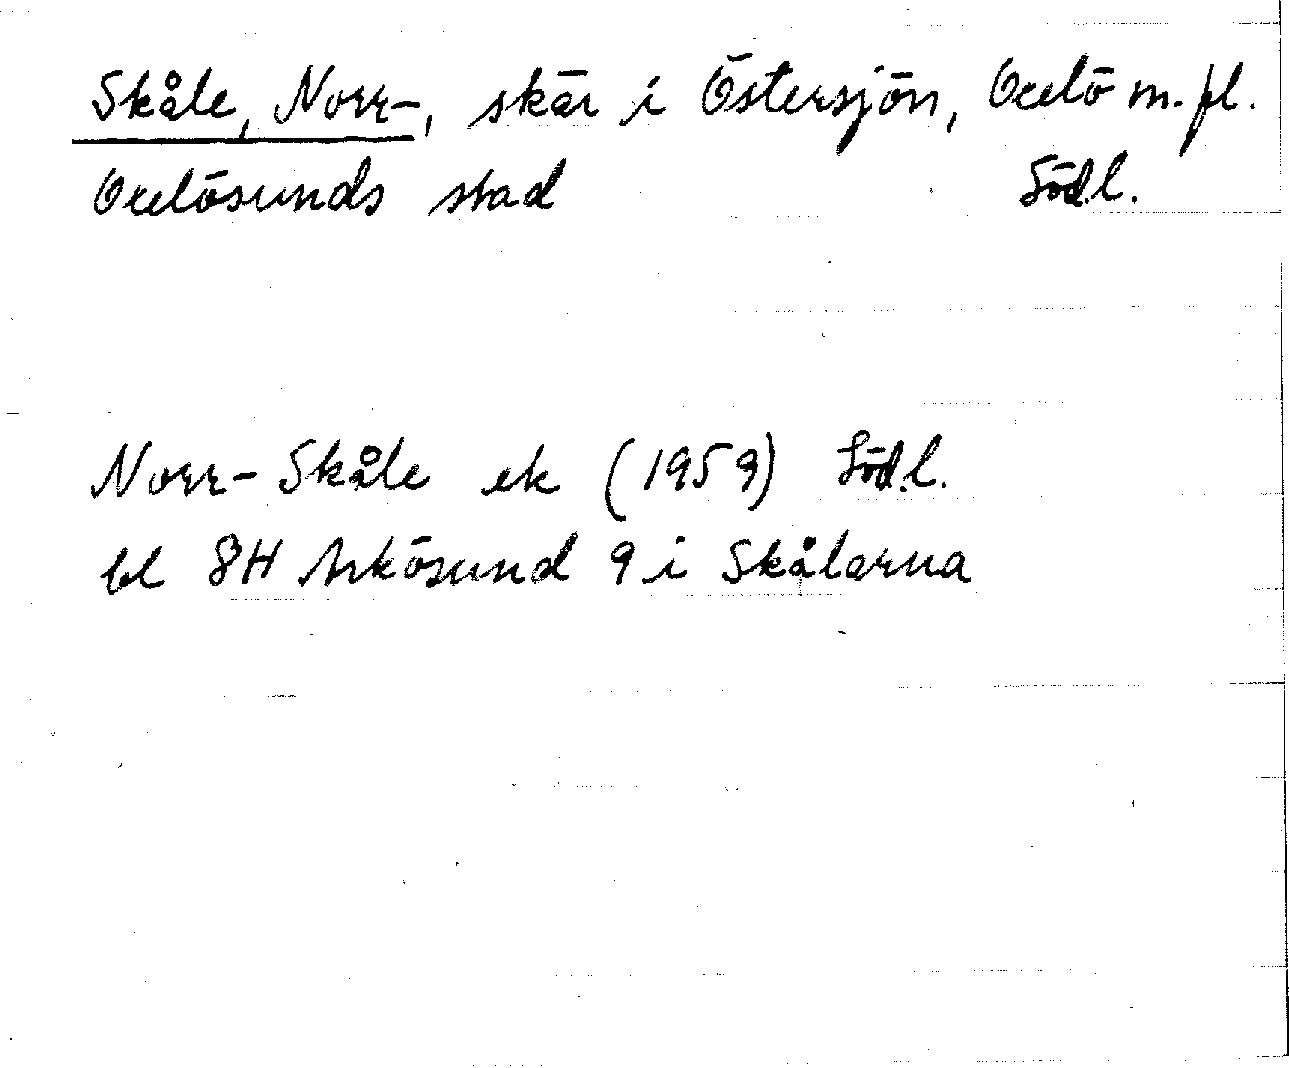 Skåle, Norr-, skär i Östersjön, Oxelö m. fl.
Oxelösunds stad Södl.
Norr-Skåle ek (1959) Södl.
bl 8H Arkösund 9 i Skålarna